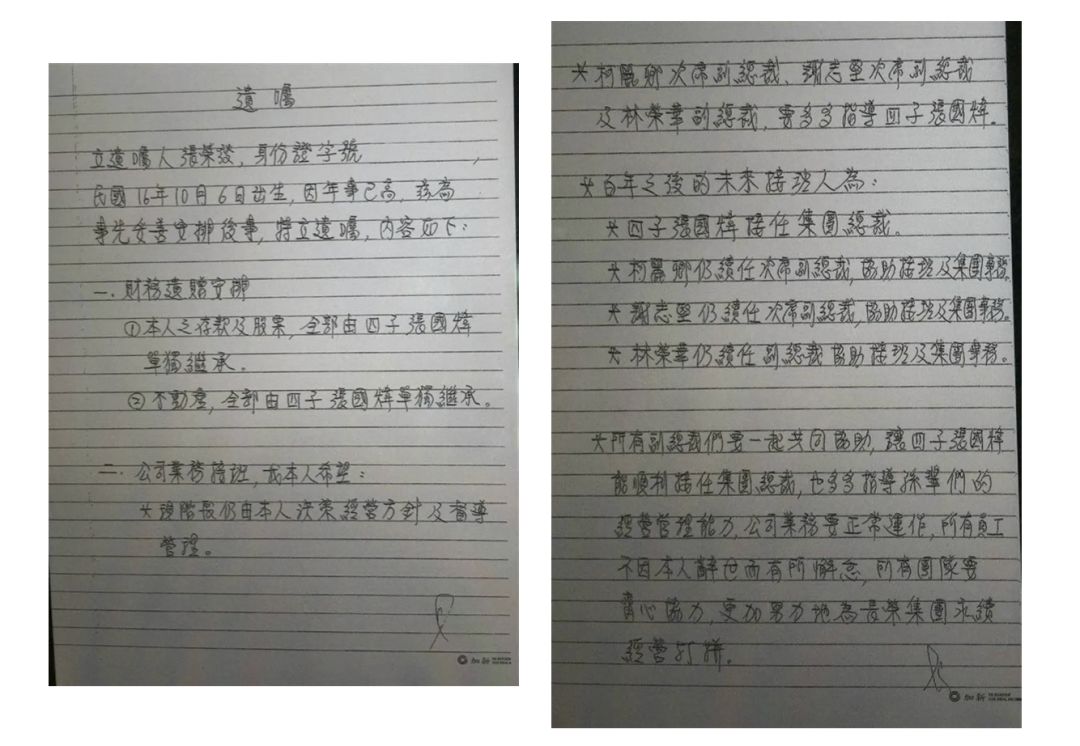 遺囑
立遺囑人張榮發，身份證字號　　　，
民國16年10月6日出生，因年事已高，茲為
事先妥善安排後事，特立遺囑，內容如下：
一．財務遺贈安排
①本人之存款及股票，全部由四子張國煒
單獨繼承。
②不動產，全部由四子張國煒單獨繼承。
二．公司業務接班，或本人希望：
＊現階段仍由本人決策經營方針及督導
管理。
加新
＊柯麗卿次席副總裁、謝志堅次席副總裁
及林榮華副總裁，要多多指導四子張國煒。
＊百年之後的未來接班人為：
＊四子張國煒接任集團總裁。
＊柯麗卿仍續任次席副總裁，協助接班及集團事務。
＊謝志堅仍續任次席副總裁，協助接班及集團事務。
＊林榮華仍續任副總裁協助接班及集團事務。
＊所有副總裁們要一起共同協助，讓四子張國煒
能順利接任集團總裁，也多多指導孫輩們的
經營管理能力，公司業務要正常運作，所有員工
不因本人辭世而有所懈怠，所有團隊要
齊心協力，更加努力地為長榮集團永續
經營打拼。
加新